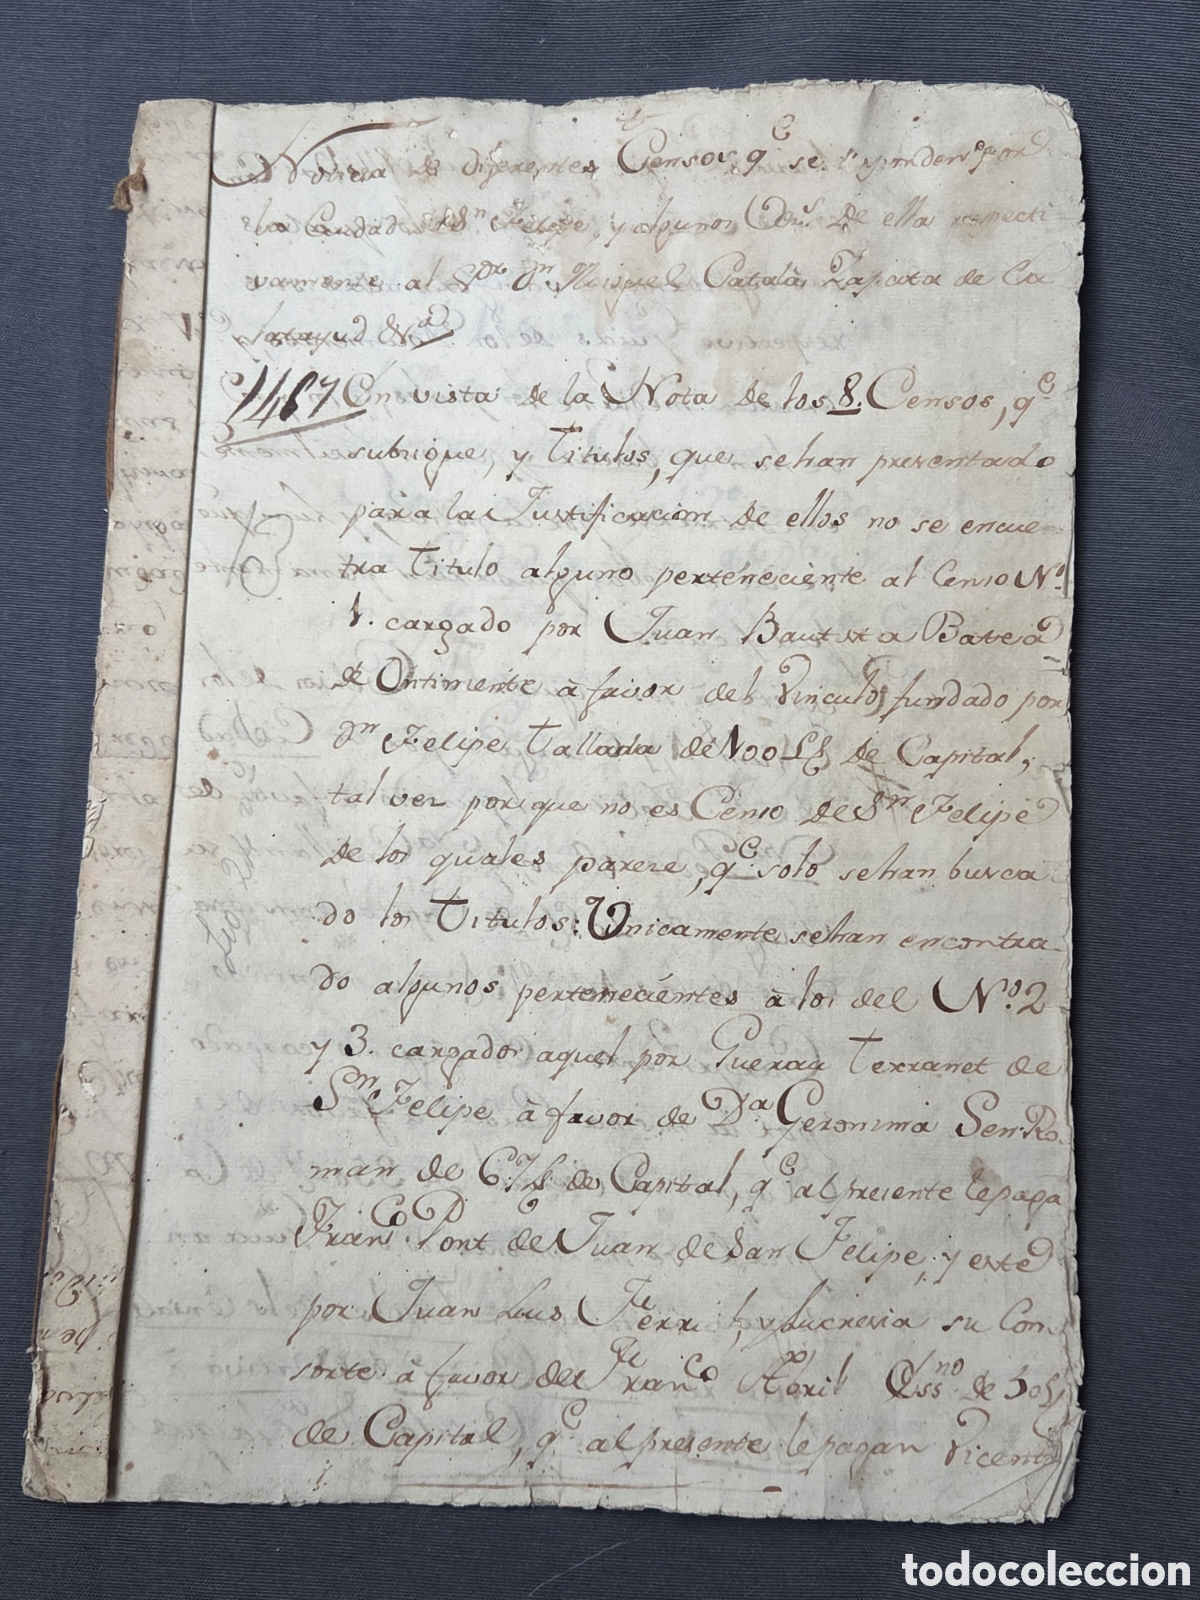 Noticia de diferentes Censos, q.e se responden por
la Ciudad de S.n Felipe, y algunos de ella respecti
vamente al S.or D.n Miguel Català Zapata de Ca
latayud
1487 En vista de la Nota de los 8. Censos, q.e
subsigue, y Titulos, que sehan presentado
para la Justificacion de ellos no se encue
tra Titulo alguno perteneciente al Censo N.o
1. cargado por Juan Bautista
de Ontiniente à favor del Vinculo, fundado por
D.n Felipe Tallada de 100 L de Capital,
tal vez por que no es Censo de S.n Felipe
de los quales parece, q.e solo sehan busca
do los Titulos: Unicamente sehan encontra
do algunos pertenecientes à los del N.o 2
y 3. cargados aquel por Guerau Terranet de
S.n Felipe à favor de D.a Geronima Sen Ro
man de 67 L de Capital, q.e al presente le paga
Fran.co Pont de Juan de San Felipe, y este
por Juan Luis Ferri, y Lucresia su Con
sorte à favor del Fran.co Abril Ess.no de 50 L
de Capital, q.e al presente le pagan Vicente
todocoleccion